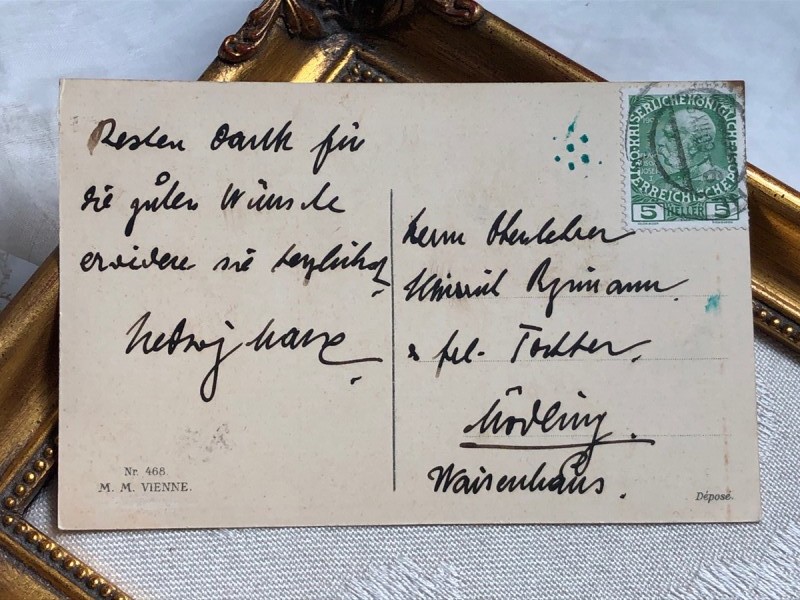 Besten Dank für
die guten Wünsche
erwidere sie herzlichst
Hedwig
Nr. 468.
M. M. VIENNE.
KAISERLICHE KÖNIGLICHE
ÖSTERREICHISCHE
5 HELLER 5
Herrn Oberlehrer
Heinrich
& frl. Tochter.
Mödling.
Waisenhaus.
Déposé.